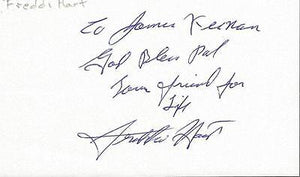 Freddi Hart
To James Keenan
God Bless Pal
Your friend for
Life
Freddie Hart